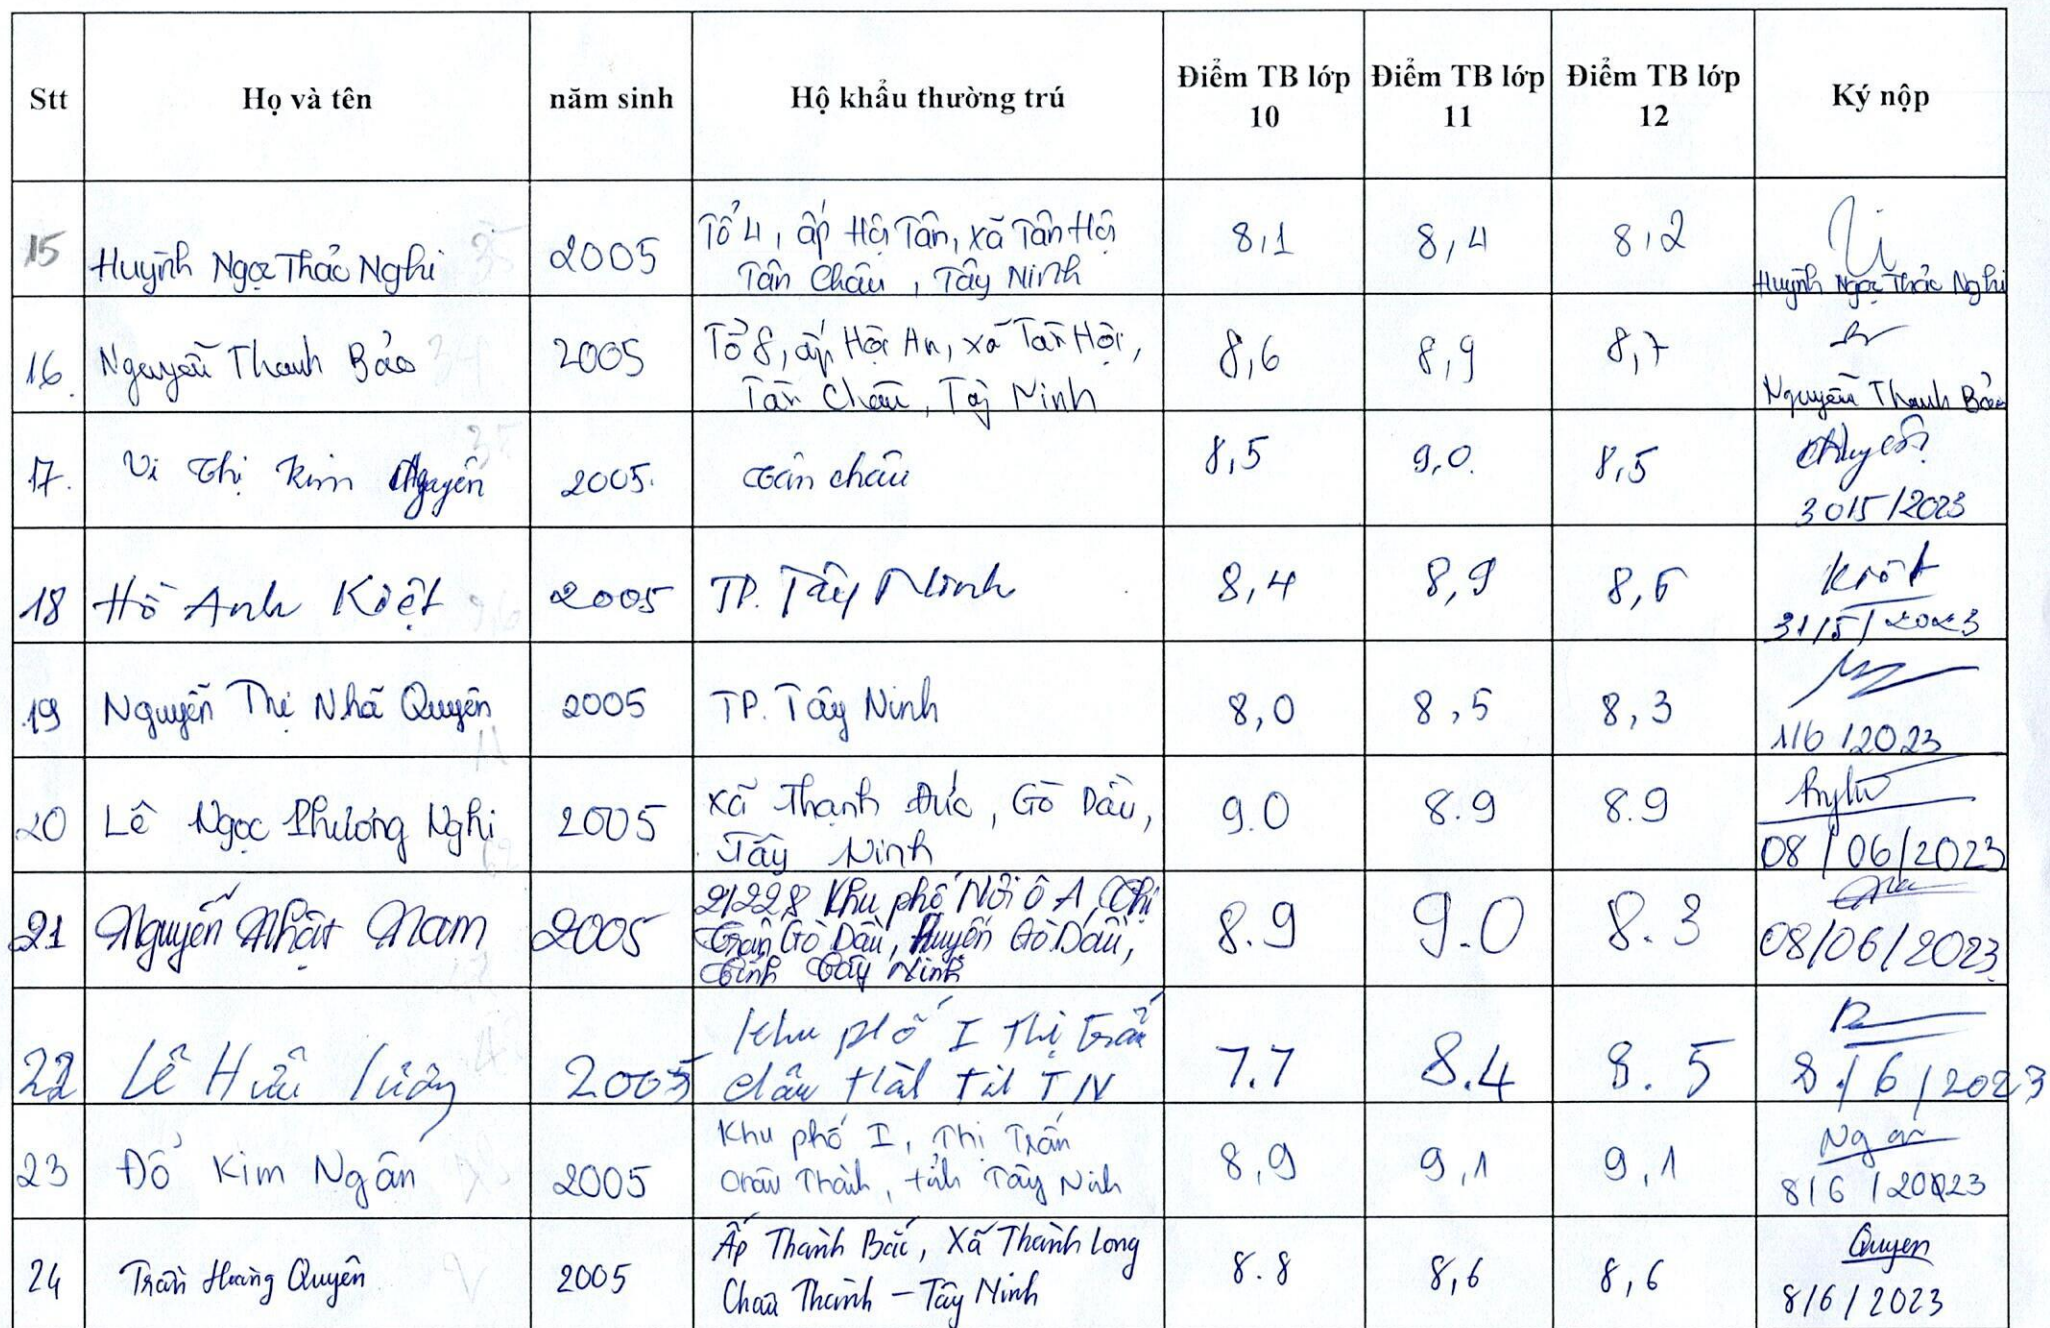 Stt Họ và tên năm sinh Hộ khẩu thường trú Điểm TB lớp 10 Điểm TB lớp 11 Điểm TB lớp 12 Ký nộp
15 Huỳnh Ngọc Thảo Nghi 2005 Tổ 4, ấp Hội Tân, xã Tân Hội 8,1 8,4 8,2
Tân Châu, Tây Ninh
Huỳnh Ngọc Thảo Nghi
16. Nguyễn Thanh Bảo 2005 Tổ 8, ấp Hội An, xã Tân Hội, 8,6 8,9 8,7
Tân Châu, Tây Ninh
Nguyễn Thanh Bảo
17. Vi Thị Kim Nguyên 2005. Tân châu 8,5 9,0. 8,5
30/5/2023
18 Hồ Anh Kiệt 2005 TP. Tây Ninh 8,4 8,9 Kiệt
31/5/2023
19 Nguyễn Thị Nhã Quyên 2005 TP. Tây Ninh 8,0 8,5 8,3
1/6/2023
20 Lê Ngọc Phương Nghi 2005 xã Thạnh Đức, Gò Dầu, 9.0 8.9 8.9
Tây Ninh
08/06/2023
21 Nguyễn Nhật Nam 2005 Khu phố Nội Ô A, Thị 8.9 9.0 8.3
Trấn Gò Dầu, Huyện Gò Dầu,
tỉnh Tây Ninh
08/06/2023
22 Lê Hữu 2005 Khu phố I Thị trấn 7.7 8.4 8.5
Châu TN
8/6/2023
23 Đỗ Kim Ngân 2005 Khu phố I, Thị Trấn 8,9 9,1 9,1 Ngân
Châu Thành, tỉnh Tây Ninh
8/6/2023
24 Trần Hoàng Quyên 2005 Ấp Thành Bắc, Xã Thành Long 8.8 8,6 8,6 Quyen
Châu Thành - Tây Ninh
8/6/2023